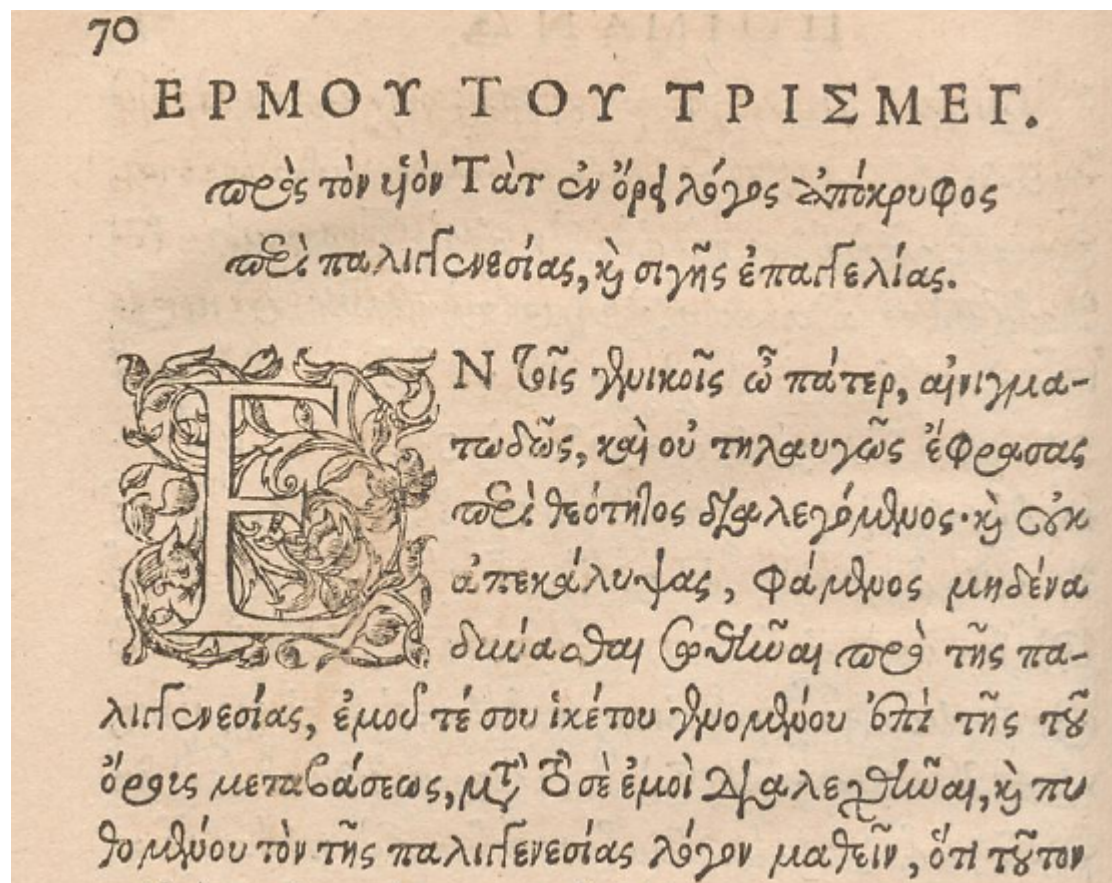 70
ΕΡΜΟΥ ΤΟΥ ΤΡΙΣΜΕΓ.
πρὸς τὸν υἱὸν Τὰτ ἐν ὄρει λόγος ἀπόκρυφος
περὶ παλιγγενεσίας, καὶ σιγῆς ἐπαγγελίας.
ΕΝ τοῖς γενικοῖς ὦ πάτερ, αἰνιγμα-
τωδῶς, καὶ οὐ τηλαυγῶς ἔφρασας
περὶ θεότητος διαλεγόμενος· καὶ οὐκ
ἀπεκάλυψας, φάμενος μηδένα
δύνασθαι σωθῆναι πρὸ τῆς πα-
λιγγενεσίας, ἐμοῦ τέ σου ἱκέτου γενομένου ἐπὶ τῆς τοῦ
ὄρους μεταβάσεως, μετὰ τὸ σὲ ἐμοὶ διαλεχθῆναι, καὶ πυ
θομένου τὸν τῆς παλιγγενεσίας λόγον μαθεῖν, ὅτι τοῦτον